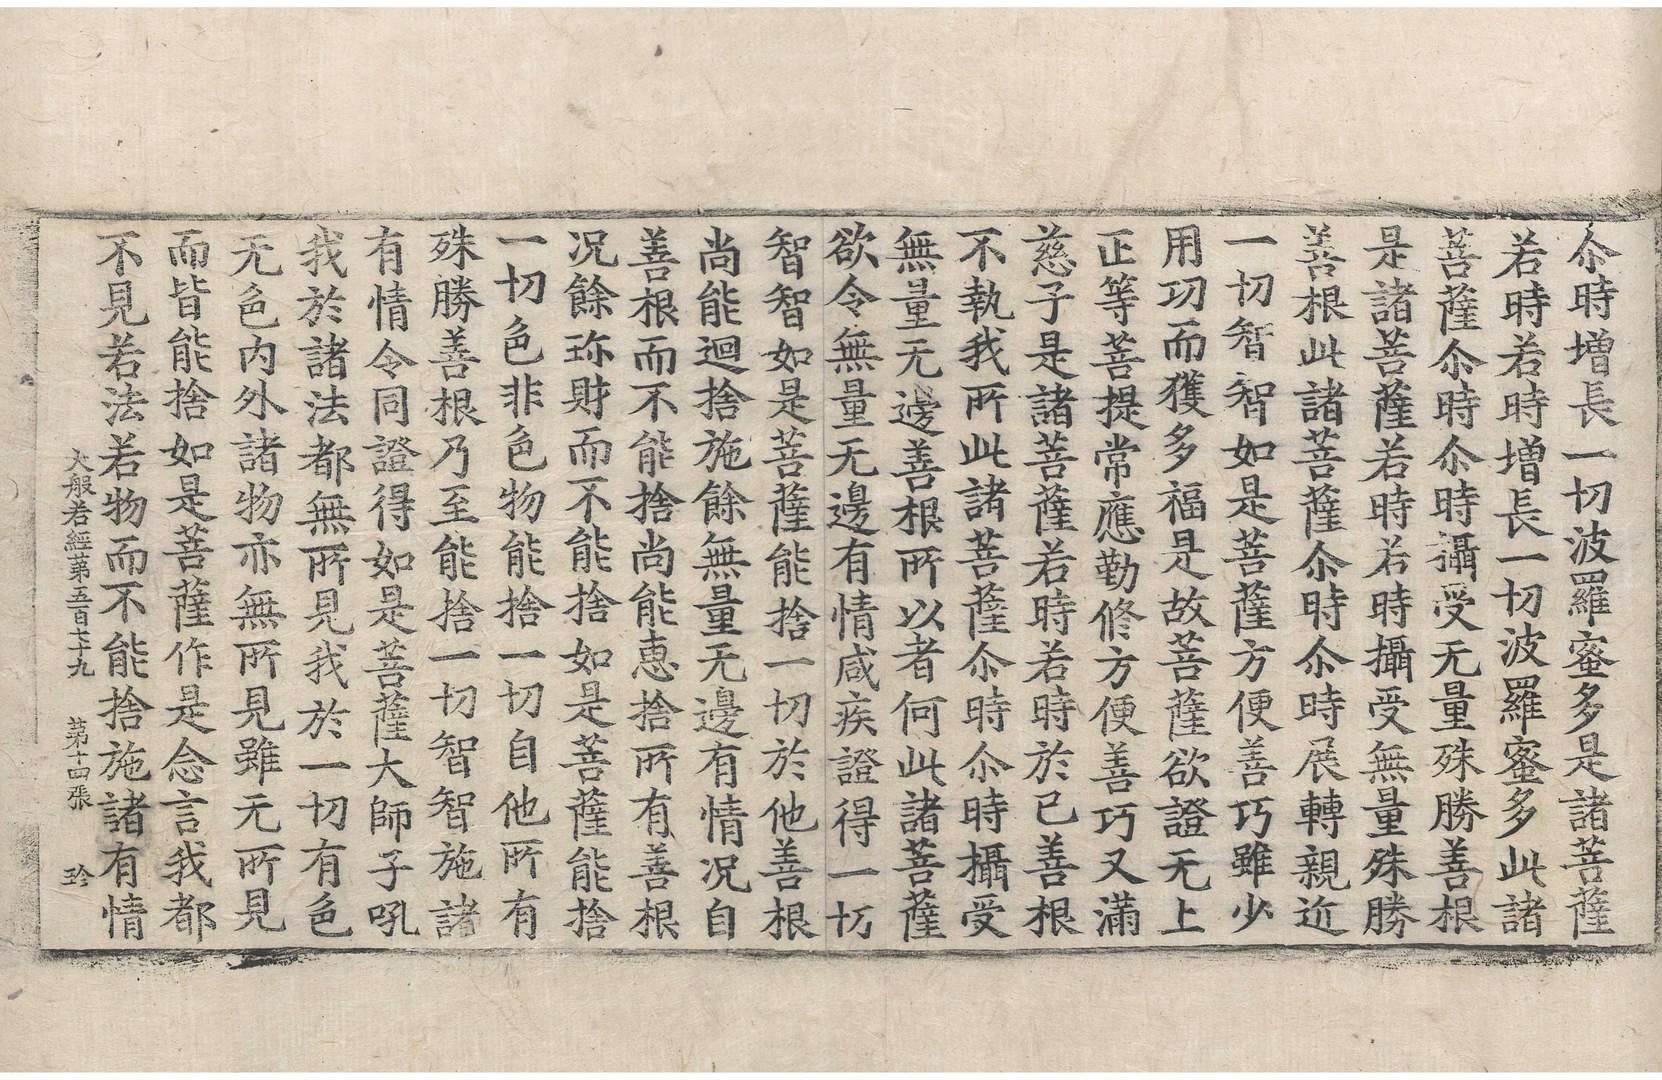 尒時增長一切波羅蜜多是諸菩薩
若時若時增長一切波羅蜜多此諸
菩薩尒時尒時攝受无量殊勝善根
是諸菩薩若時若時攝受無量殊勝
善根此諸菩薩尒時尒時展轉親近
一切智智如是菩薩方便善巧雖少
用功而獲多福是故菩薩欲證无上
正等菩提常應勤修方便善巧又滿
慈子是諸菩薩若時若時於己善根
不執我所此諸菩薩尒時尒時攝受
無量无邊善根所以者何此諸菩薩
欲令無量无邊有情咸疾證得一切
智智如是菩薩能捨一切於他善根
尚能迴捨施餘無量无邊有情況自
善根而不能捨尚能惠捨所有善根
况餘珎財而不能捨如是菩薩能捨
一切色非色物能捨一切自他所有
殊勝善根乃至能捨一切智智施諸
有情令同證得如是菩薩大師子吼
我於諸法都無所見我於一切有色
无色內外諸物亦無所見雖无所見
而皆能捨如是菩薩作是念言我都
不見若法若物而不能捨施諸有情
大般若經第五百七十九 第十四張 珍